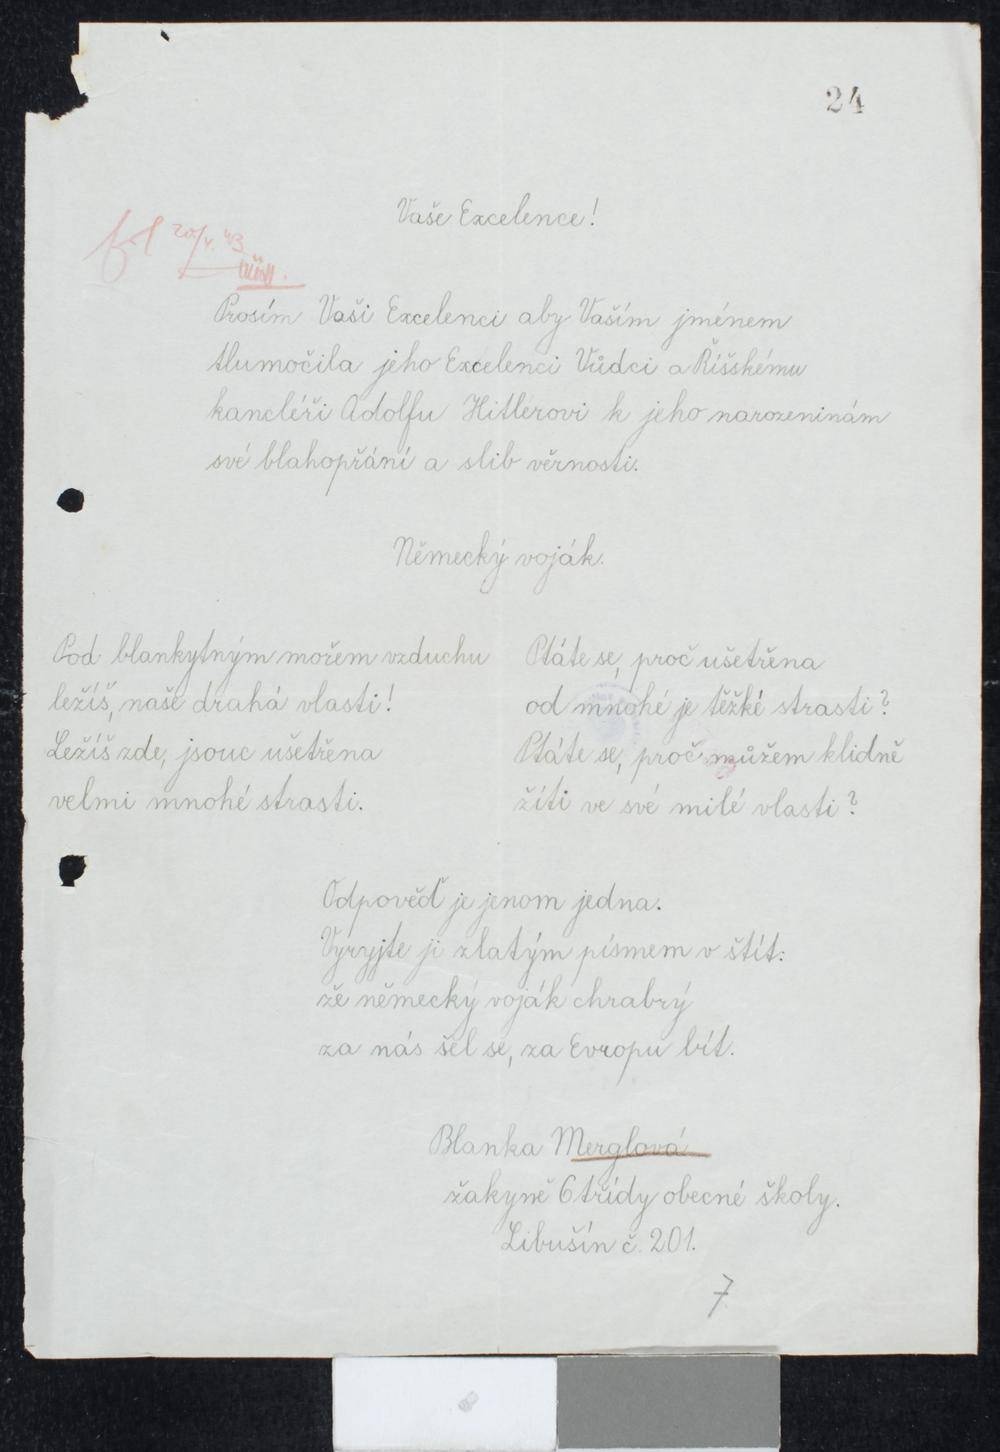 24
Vaše Excelence!
20/V. 43
Prosím Vaši Excelenci aby Vaším jménem
tlumočila jeho Excelenci Vůdci a Říšskému
kancléři Adolfu Hitlerovi k jeho narozeninám
své blahopřání a slib věrnosti.
Německý voják.
Pod blankytným mořem vzduchu
ležíš, naše drahá vlasti!
Ležíš zde, jsouc ušetřena
velmi mnohé strasti.
Ptáte se, proč ušetřena
od mnohé je těžké strasti?
Ptáte se, proč můžem klidně
žíti ve své milé vlasti?
Odpověď je jenom jedna.
Vyryjte ji zlatým písmem v štít:
že německý voják chrabrý
za nás šel se, za Evropu bít.
Blanka Merglová
žakyně 6 třídy obecné školy.
Libušín č. 201.
7